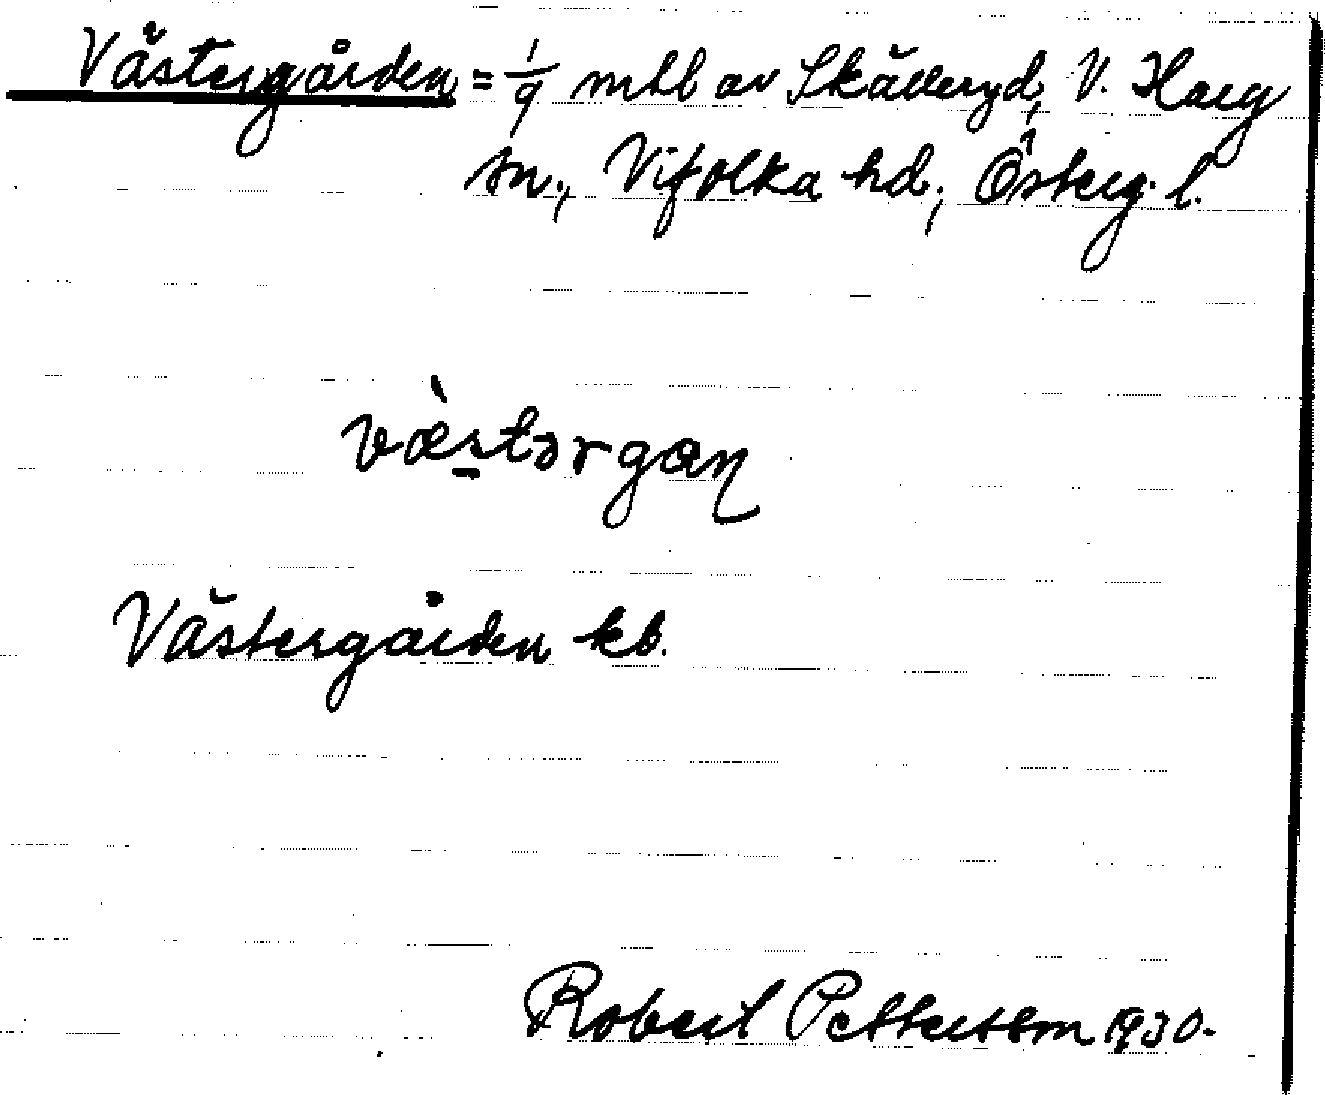 Västergården = 1/9 mtl av Skälleryd, V. Harg
sn., Vifolka hd., Österg. l.
vǽstərgaɳ
Västergården kb.
Robert Petterson 1930.